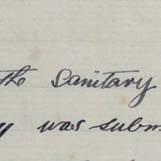 the Sanitary
was subm